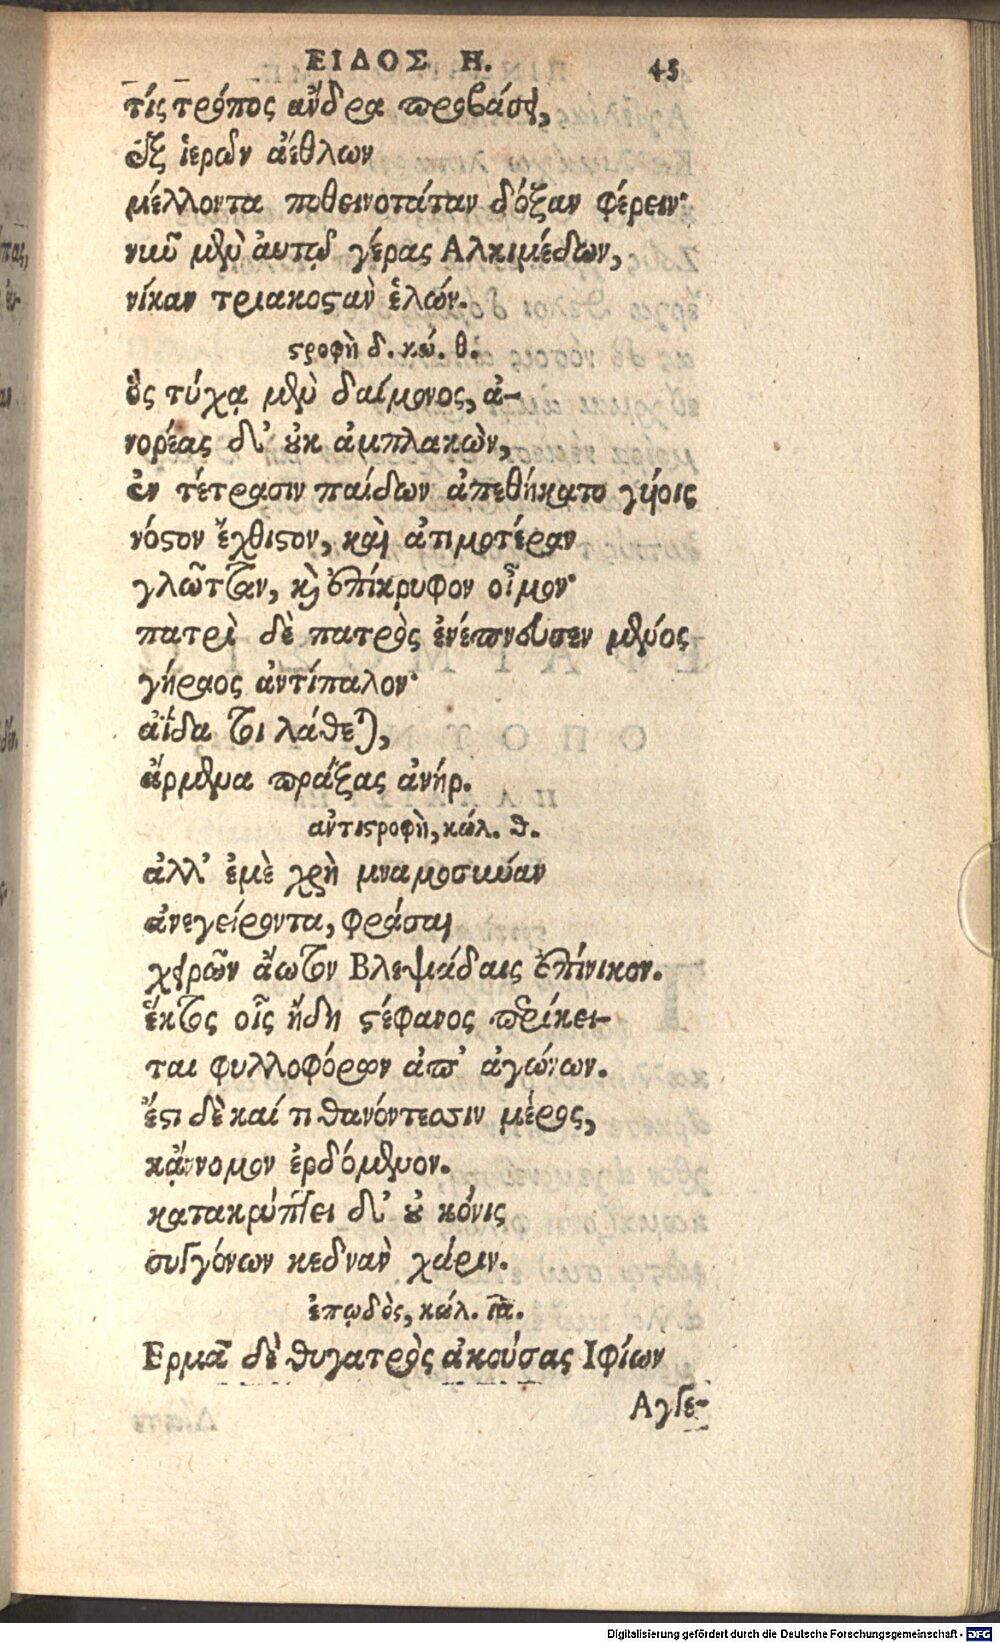 ΕΙΔΟΣ Η. 45
τίς τρόπος ἄνδρα προβάσει,
ἐξ ἱερῶν ἀέθλων
μέλλοντα ποθεινοτάταν δόξαν φέρειν·
νῦν μὲν ἀυτῷ γέρας Αλκιμέδων,
νίκαν τριακοστὰν ἑλών.
στροφὴ δ. κώ. θ.
ὃς τύχᾳ μὲν δαίμονος, ἀ-
νορέας δ' οὐκ ἀμπλακὼν,
ἐν τέτρασιν παίδων ἀπεθήκατο γυίοις
νόστον ἔχθιστον, καὶ ἀτιμοτέραν
γλῶτταν, καὶ ἐπίκρυφον οἶμον·
πατρὶ δὲ πατρὸς ἐνέπνευσεν μένος
γήραος ἀντίπαλον·
ἀΐδα τοι λάθεται,
ἄρμενα πράξας ἀνήρ.
ἀντιστροφὴ, κώλ. θ.
ἀλλ' ἐμὲ χρὴ μναμοσύναν
ἀνεγείροντα, φράσαι
χειρῶν ἄωτον Βλεψιάδαις ἐπίνικον.
ἕκτος οἷς ἤδη στέφανος περίκει-
ται φυλλοφόρων ἀπ' ἀγώνων.
ἔστι δὲ καί τι θανόντεσσιν μέρος,
κἀννομον ἐρδόμενον.
κατακρύπτει δ' οὐ κόνις
συγγόνων κεδνὰν χάριν.
ἐπῳδὸς, κώλ. ια.
Ερμᾶ δὲ θυγατρὸς ἀκούσας Ιφίων
Αγγε-
Digitalisierung gefördert durch die Deutsche Forschungsgemeinschaft - DFG